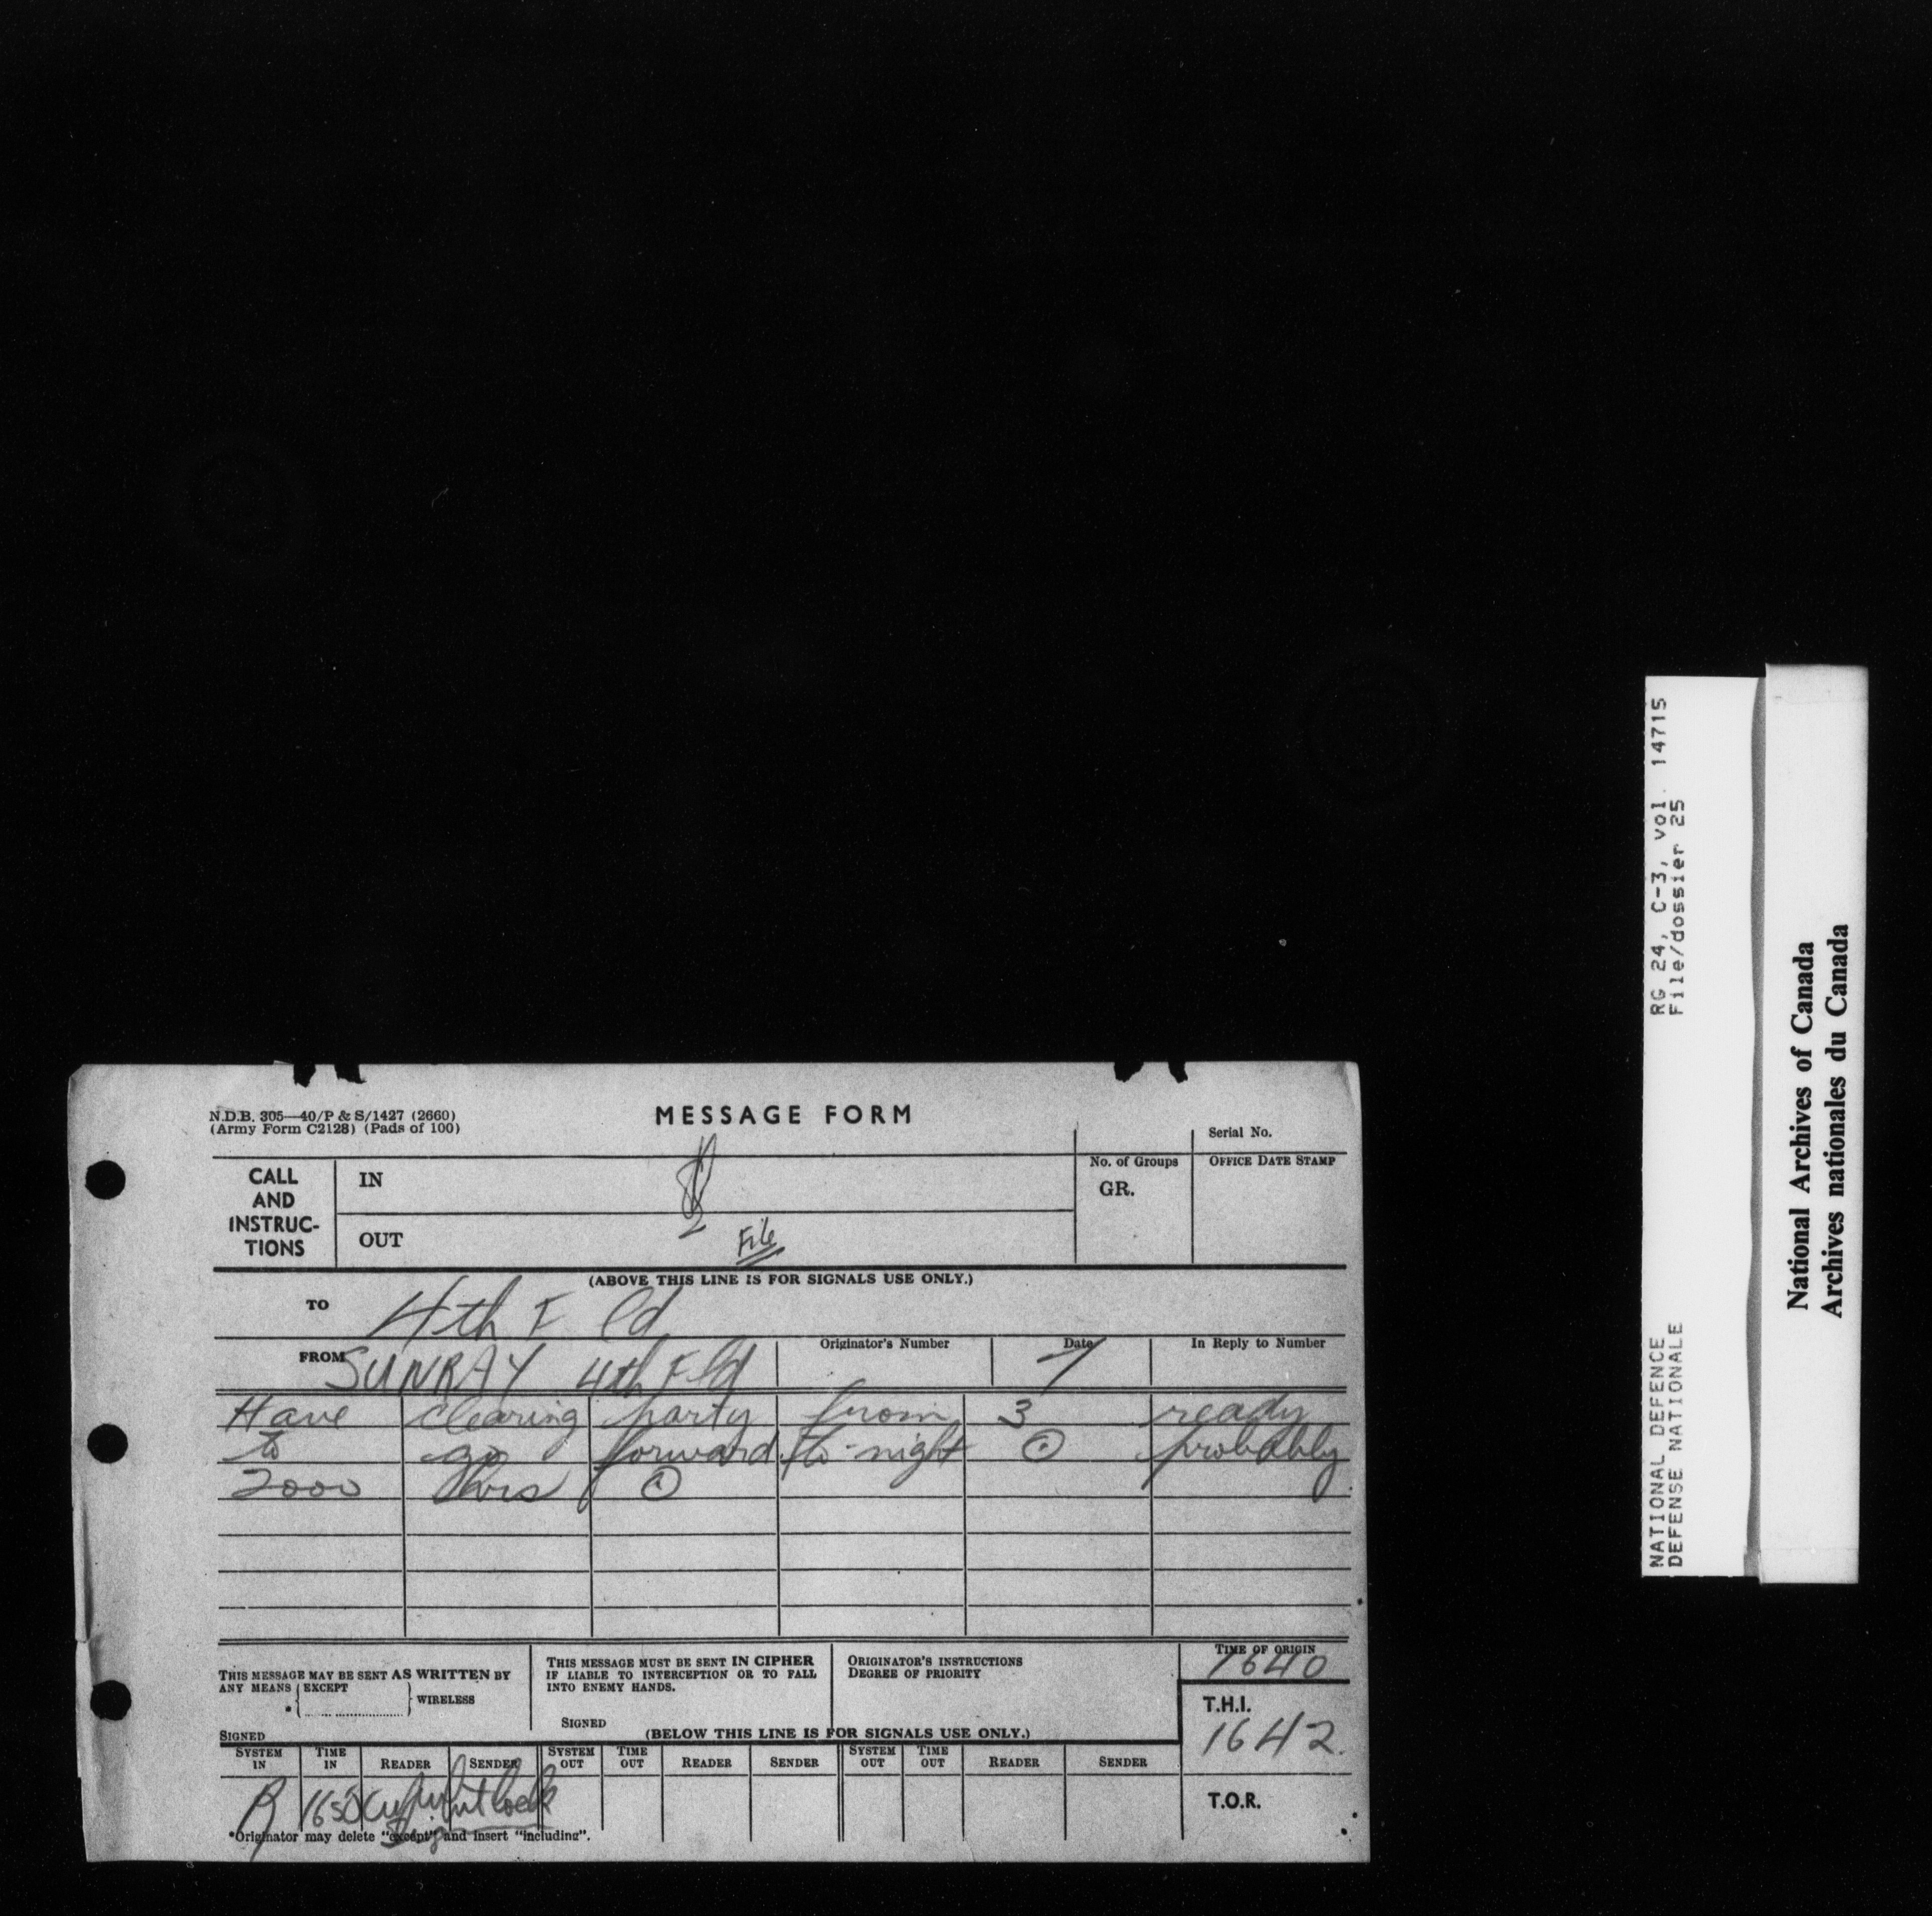 N.D.B. 305—40/P & S/1427 (2660)
(Army Form C2128) (Pads of 100)
MESSAGE FORM
Serial No.
CALL AND INSTRUC-TIONS
IN
OUT
File
No. of Groups
GR.
OFFICE DATE STAMP
(ABOVE THIS LINE IS FOR SIGNALS USE ONLY.)
TO 4th Fld
FROM SUNRAY 4th Fld
Originator's Number
Date 7
In Reply to Number
Have clearing party from 3 ready
to go forward to-night ⊙ probably
2000 hrs ⊙
THIS MESSAGE MAY BE SENT AS WRITTEN BY
ANY MEANS { EXCEPT } WIRELESS
SIGNED
THIS MESSAGE MUST BE SENT IN CIPHER
IF LIABLE TO INTERCEPTION OR TO FALL
INTO ENEMY HANDS.
SIGNED
ORIGINATOR'S INSTRUCTIONS
DEGREE OF PRIORITY
TIME OF ORIGIN
1640
T.H.I.
1642
T.O.R.
(BELOW THIS LINE IS FOR SIGNALS USE ONLY.)
SYSTEM IN TIME IN READER SENDER SYSTEM OUT TIME OUT READER SENDER SYSTEM OUT TIME OUT READER SENDER
R 1650
*Originator may delete "except" and insert "including".
RG 24, C-3, vol. 14715
File/dossier 25
NATIONAL DEFENCE
DEFENSE NATIONALE
National Archives of Canada
Archives nationales du Canada